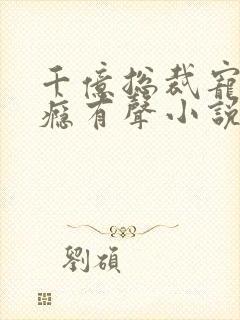 千億總裁寵
癮有聲小說
劉碩